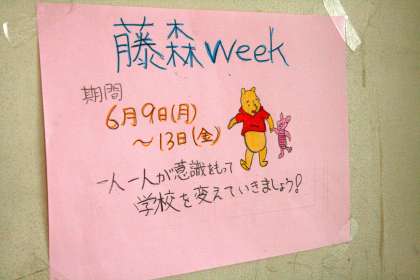 藤森week
期間
6月9日(月)
～13日(金)
一人一人が意識をもって
学校を変えていきましょう!